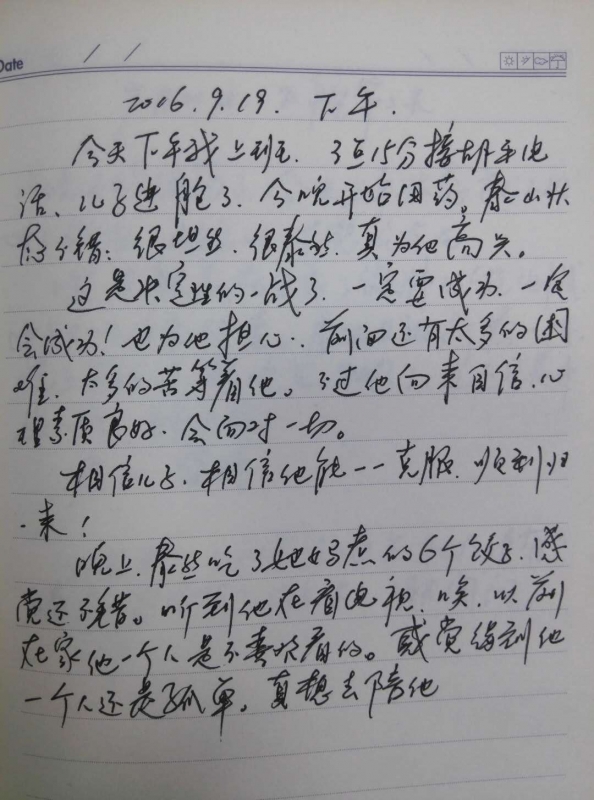 Date / /
2006.9.13. 下午.
今天下午我上班, 3点15分接胡平电
话、儿子进舱了, 今晚开始用药。泰山状
态不错; 很坦然, 很泰然, 真为他高兴。
这是决定性的一战了, 一定要成功, 一定
会成功! 也为他担心.. 前面还有太多的困
难, 太多的苦等着他。不过他向来自信, 心
理素质良好, 会面对一切。
相信儿子, 相信他能一一克服, 顺利归
来!
晚上, 泰然吃了她妈煮的6个饺子, 感
觉还不错。听到他在看电视, 唉, 以前
在家他一个人是不喜欢看的。感觉得到他
一个人还是孤单, 真想去陪他